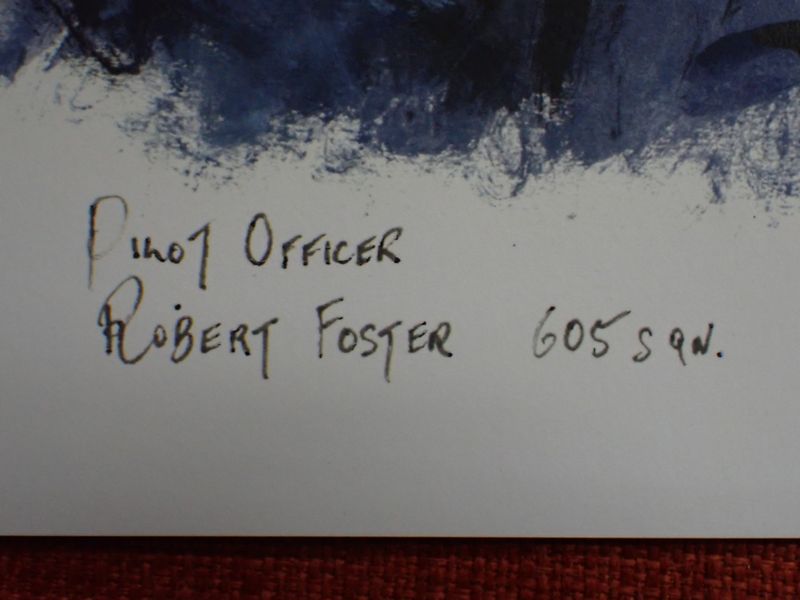 PILOT OFFICER
ROBERT FOSTER 605 SQN.